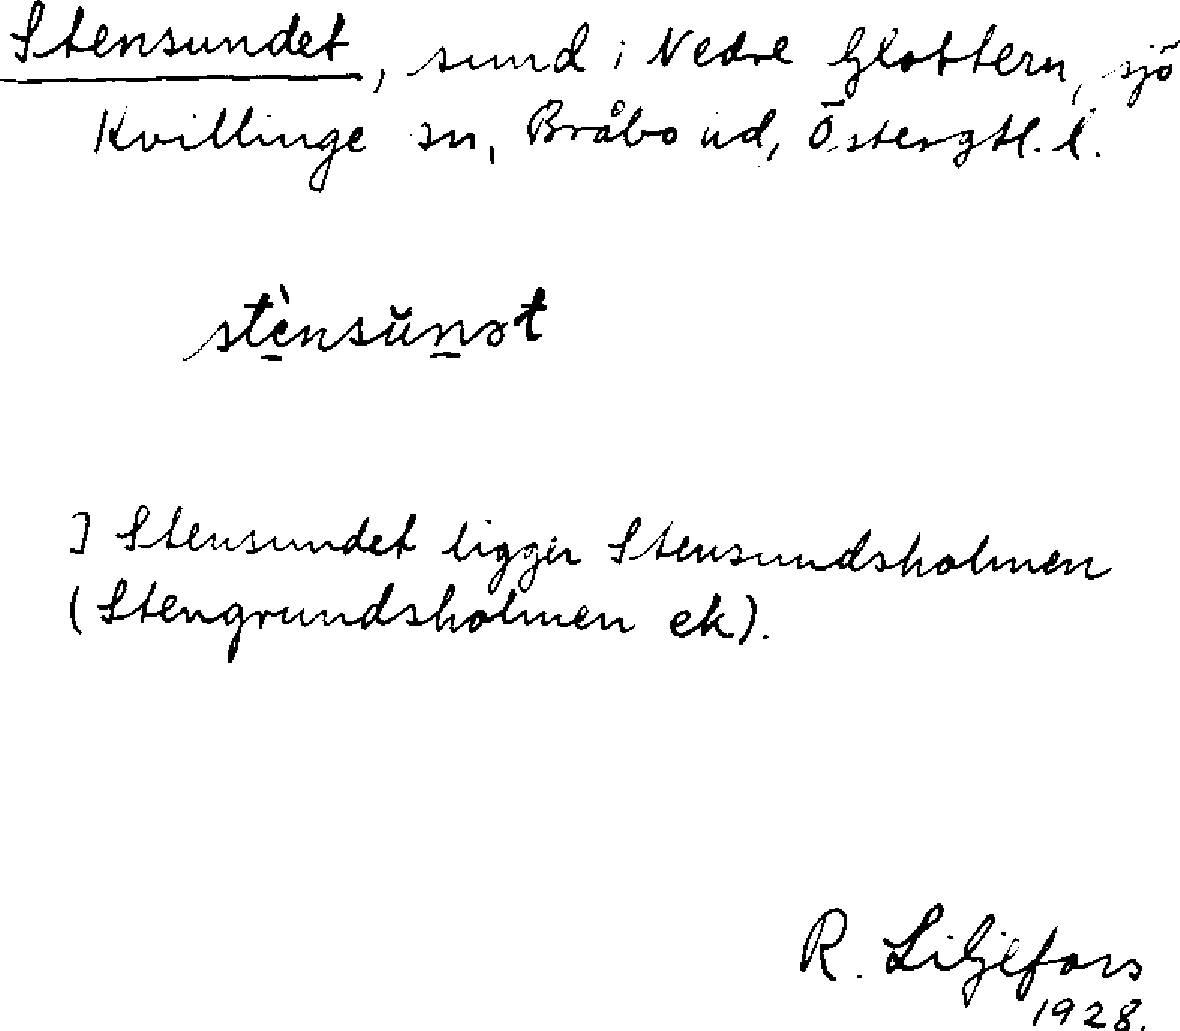 Stensundet, sund i Nedre Glottern, sjö
Kvillinge sn, Bråbo hd, Östergtl. l.
stènsŭnət
I Stensundet ligger Stensundsholmen
(Stengrundsholmen ek).
R. Liljefors
1928.